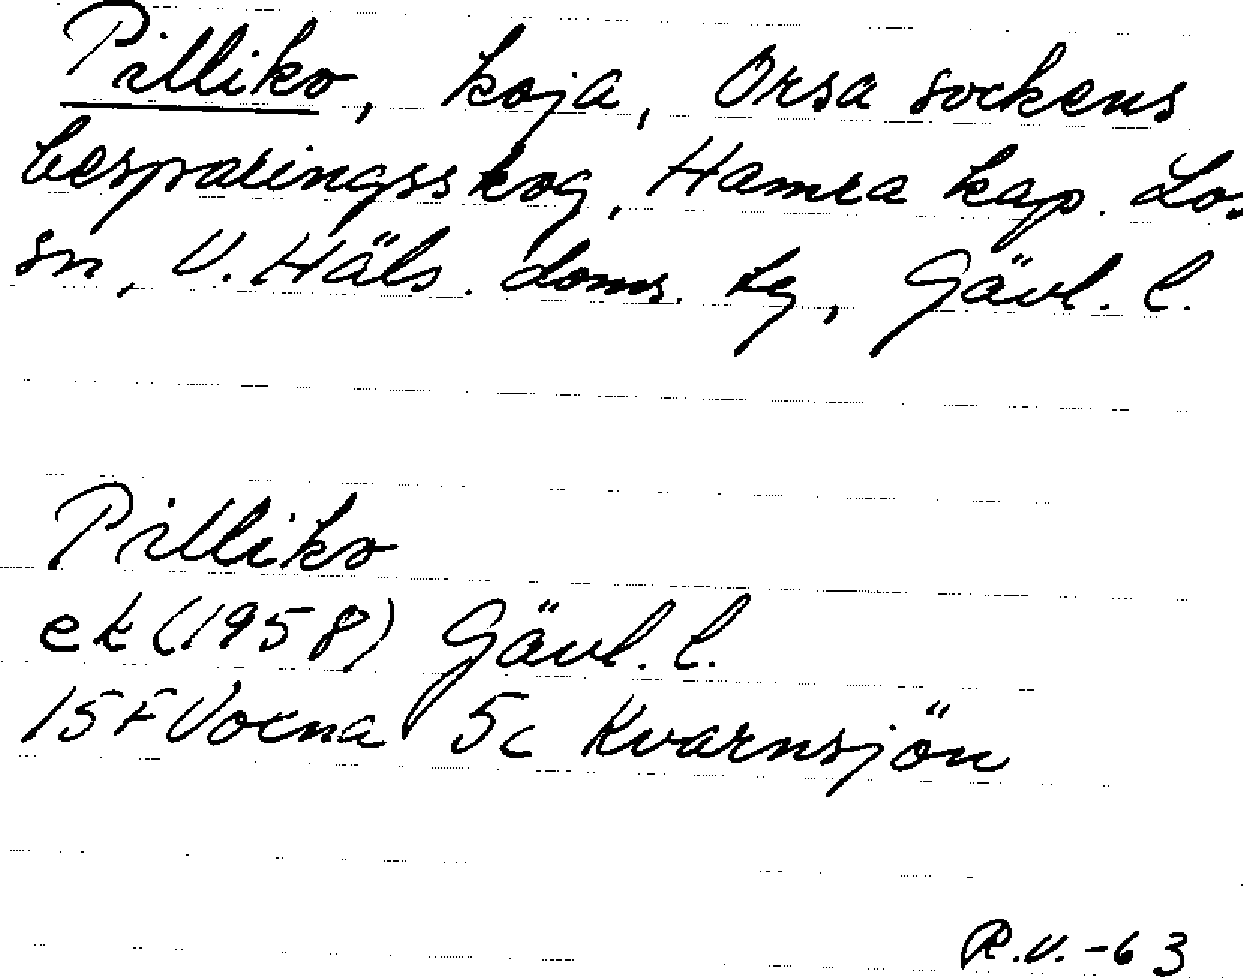 Pilliko, koja, Orsa sockens
besparingsskog, Hamra kap. Los
sn, V. Häls. doms. tg, Gävl. l.
Pilliko
ek (1958) Gävl. l.
15 F Voxna 5c Kvarnsjön
R.V. -63